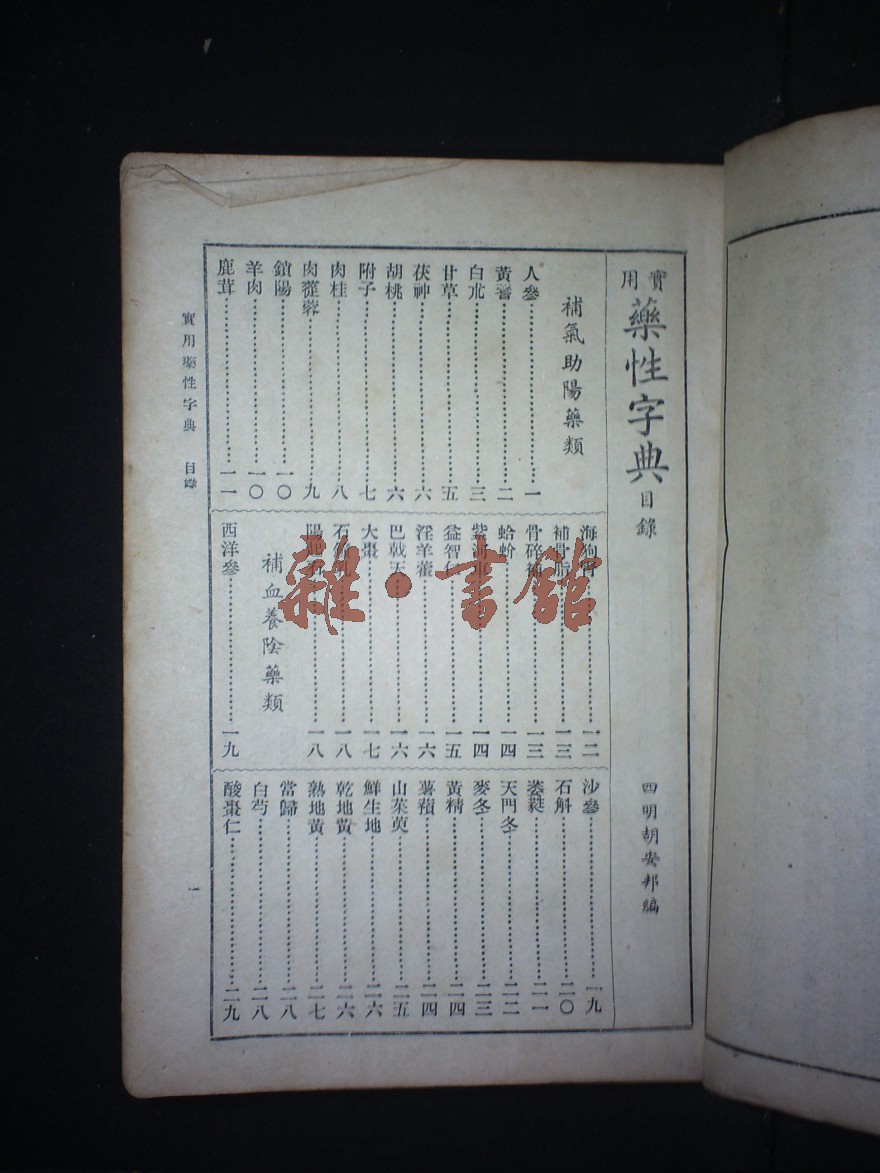 實用藥性字典目錄
四明胡安邦編
補氣助陽藥類
人參一
黃耆二
白朮三
甘草五
茯神六
胡桃六
附子七
肉桂八
肉蓯蓉九
鎖陽一〇
羊肉一〇
鹿茸一一
海狗腎一二
補骨脂一三
骨碎補一三
蛤蚧一四
紫河車一四
益智仁一五
淫羊藿一六
巴戟天一六
大棗一七
石一八
陽起石一八
補血養陰藥類
西洋參一九
沙參一九
石斛二〇
萎蕤二一
天門冬二二
麥冬二三
黃精二四
薯蕷二四
山茱萸二五
鮮生地二六
乾地黃二六
熟地黃二七
當歸二八
白芍二八
酸棗仁二九
實用藥性字典 目錄
一
雜·書館